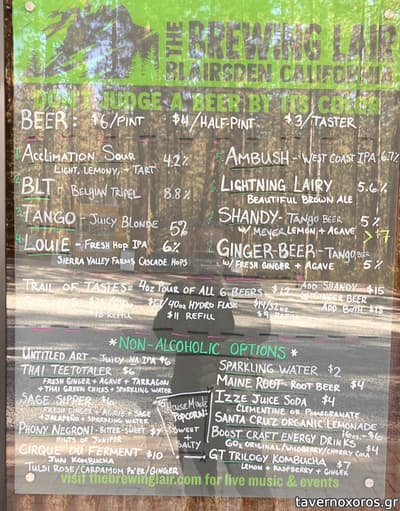 THE BREWING LAIR
BLAIRSDEN CALIFORNIA
DON'T JUDGE A BEER BY ITS COLOR
BEER: $6/PINT $4/HALF-PINT $3/TASTER
1. ACCLIMATION SOUR 4.2%
LIGHT, LEMONY, + TART
2. BLT - BELGIAN TRIPEL 8.8%
3. TANGO - JUICY BLONDE 5%
4. LOUIE - FRESH HOP IPA 6%
SIERRA VALLEY FARMS CASCADE HOPS
5. AMBUSH - WEST COAST IPA 6.7%
LIGHTNING LAIRY 5.6%
BEAUTIFUL BROWN ALE
SHANDY - TANGO BEER 5%
W/ MEYER LEMON + AGAVE
>$7
GINGER-BEER - TANGO BEER
W/ FRESH GINGER + AGAVE 5%
TRAIL OF TASTES = 4oz POUR OF ALL 6 BEERS $12
ADD SHANDY $15
GINGER BEER
ADD BOTH $18
40oz HYDRO FLASK
$11 REFILL
*NON-ALCOHOLIC OPTIONS*
UNTITLED ART - JUICY NA IPA $6
THAI TEETOTALER $6
FRESH GINGER + AGAVE + TARRAGON
+ THAI GREEN CHILES + SPARKLING WATER
SAGE SIPPER $6
FRESH GINGER + AGAVE + SAGE
+ JALAPEÑO + SPARKLING WATER
PHONY NEGRONI - BITTER + SWEET $7
HINTS OF JUNIPER
CIRQUE DU FERMENT $10
JUN KOMBUCHA
TULSI ROSE/CARDAMOM PEAR/GINGER
HOUSE MADE
POPCORN:
SWEET
+
SALTY
SPARKLING WATER $2
MAINE ROOT - ROOT BEER $4
IZZE JUICE SODA $4
CLEMENTINE OR POMEGRANATE
SANTA CRUZ ORGANIC LEMONADE
16oz - $6
BOOST CRAFT ENERGY DRINKS $4
GT TRILOGY KOMBUCHA $7
LEMON + RASPBERRY + GINGER
visit thebrewinglair.com for live music & events
tavernoxoros.gr